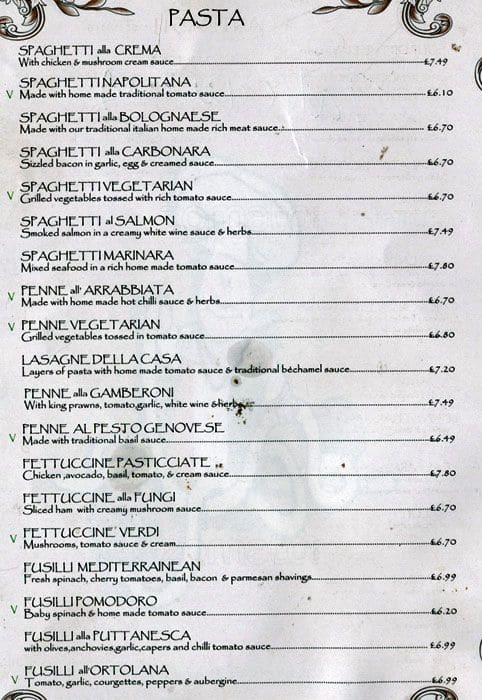 PASTA
SPAGHETTI alla CREMA
With chicken & mushroom cream sauce £7.49
SPAGHETTI NAPOLITANA
V Made with home made traditional tomato sauce £6.10
SPAGHETTI alla BOLOGNAESE
Made with our traditional italian home made rich meat sauce £6.70
SPAGHETTI alla CARBONARA
Sizzled bacon in garlic, egg & creamed sauce £6.70
SPAGHETTI VEGETARIAN
V Grilled vegetables tossed with rich tomato sauce £6.70
SPAGHETTI al SALMON
Smoked salmon in a creamy white wine sauce & herbs £7.49
SPAGHETTI MARINARA
Mixed seafood in a rich home made tomato sauce £7.80
V PENNE all' ARRABBIATA
Made with home made hot chilli sauce & herbs £6.70
V PENNE VEGETARIAN
Grilled vegetables tossed in tomato sauce £6.80
LASAGNE DELLA CASA
Layers of pasta with home made tomato sauce & traditional béchamel sauce £7.20
PENNE alla GAMBERONI
With king prawns, tomato,garlic, white wine &herbs £7.49
PENNE AL PESTO GENOVESE
V Made with traditional basil sauce £6.49
FETTUCCINE PASTICCIATE
Chicken ,avocado, basil, tomato, & cream sauce £7.80
FETTUCCINE alla FUNGI
Sliced ham with creamy mushroom sauce £6.70
V FETTUCCINE VERDI
Mushrooms, tomato sauce & cream £6.70
FUSILLI MEDITERRAINEAN
Fresh spinach, cherry tomatoes, basil, bacon & parmesan shavings £6.99
V FUSILLI POMODORO
Baby spinach & home made tomato sauce £6.20
FUSILLI alla PUTTANESCA
with olives,anchovies,garlic,capers and chilli tomato sauce £6.99
FUSILLI all'ORTOLANA
V Tomato, garlic, courgettes, peppers & aubergine £6.99